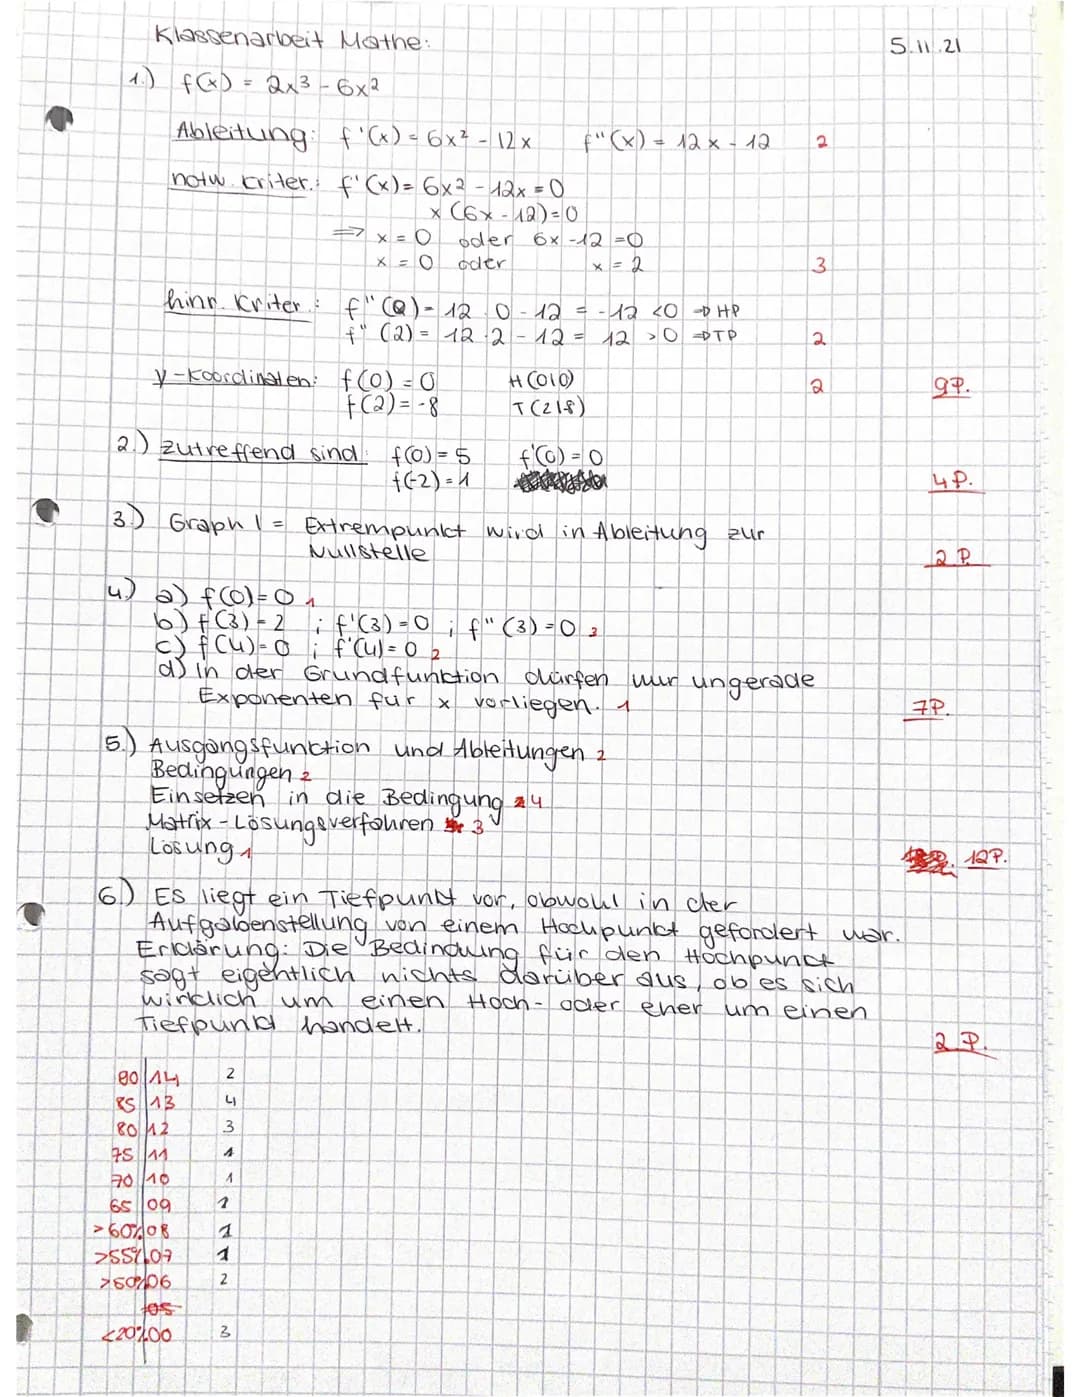 Klassenarbeit Mathe: 5.11.21
1.) f(x) = 2x³ - 6x²
Ableitung: f'(x) = 6x² - 12x f''(x) = 12x - 12 2
notw. Kriter.: f'(x) = 6x² - 12x = 0
x (6x - 12) = 0
⇒ x = 0 oder 6x - 12 = 0
x = 0 oder x = 2 3
hinr. Kriter.: f''(0) = 12 · 0 - 12 = -12 < 0 ⇒ HP
f''(2) = 12 · 2 - 12 = 12 > 0 ⇒ TP 2
y-Koordinaten: f(0) = 0 H(0|0) 2 9P.
f(2) = -8 T(2|-8)
2.) zutreffend sind: f(0) = 5 f'(0) = 0
f(-2) = 1 4P.
3.) Graph 1 = Extrempunkt wird in Ableitung zur
Nullstelle 2P.
4.) a) f(0) = 0 1
b) f(3) = 2 ; f'(3) = 0 ; f''(3) = 0 3
c) f(4) = 0 ; f'(4) = 0 2
d) in der Grundfunktion dürfen nur ungerade
Exponenten für x vorliegen. 1 7P.
5.) Ausgangsfunktion und Ableitungen 2
Bedingungen 2
Einsetzen in die Bedingung 4
Matrix-Lösungsverfahren 3
Lösung 1 12P.
6.) Es liegt ein Tiefpunkt vor, obwohl in der
Aufgabenstellung von einem Hochpunkt gefordert war.
Erklärung: Die Bedindung für den Hochpunct
sagt eigentlich nichts darüber aus, ob es sich
wirklich um einen Hoch- oder eher um einen
Tiefpunkt handelt. 2P.
90 14 2
85 13 4
80 12 3
75 11 1
70 10 1
65 09 1
>60% 08 1
>55% 07 1
>50% 06 2
05
<20% 00 3